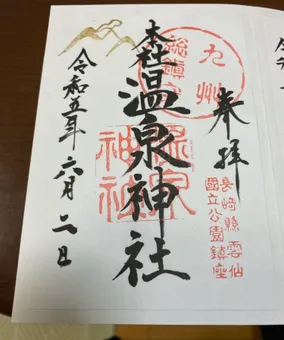 奉拝
長崎縣雲仙
國立公園鎮座
九州
總鎮守
本社温泉神社
温泉
神社
令和五年六月二日